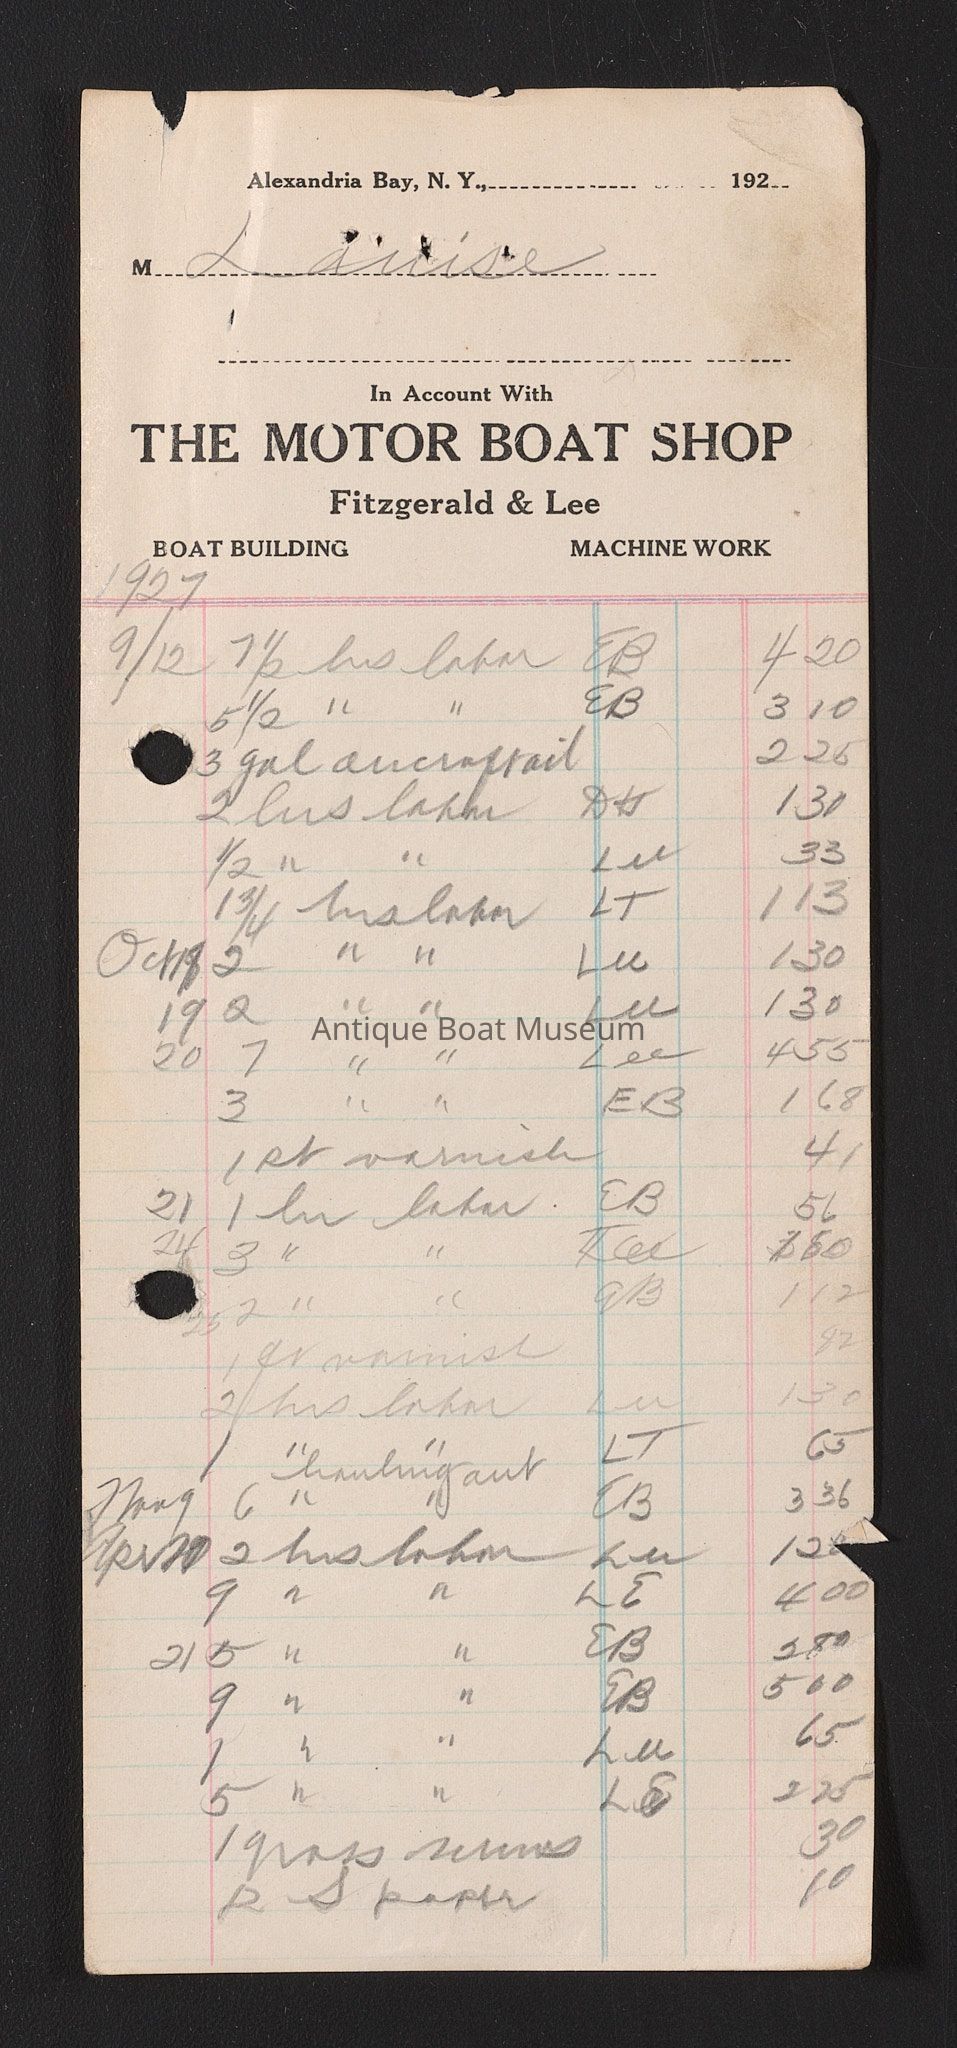 Alexandria Bay, N. Y., 192
M Louise
In Account With
THE MOTOR BOAT SHOP
Fitzgerald & Lee
BOAT BUILDING MACHINE WORK
1927
9/12 7 1/2 hrs labor EB 4 20
5 1/2 " " EB 3 10
3 gal aircraft oil 2 25
2 hrs labor 1 30
1/2 " " Lee 33
1 3/4 hrs labor LT 1 13
Oct 18 2 " " Lee 1 30
19 2 " " Lee 1 30
Antique Boat Museum
20 7 " " Lee 4 55
3 " " EB 1 68
1 pt varnish 41
21 1 hr labor EB 56
24 3 " " Lee
25 2 " " 1 12
1 qt varnish 82
2 hrs labor Lee 1 30
1 " " LT 65
hauling out
Nov 9 6 " " EB 3 36
2 hrs labor Lee
9 " " LE 4 00
21 5 " " EB 2 80
9 " " EB 5 00
1 " " Lee 65
5 " " LE 2 25
1 gross screws 30
S paper 10